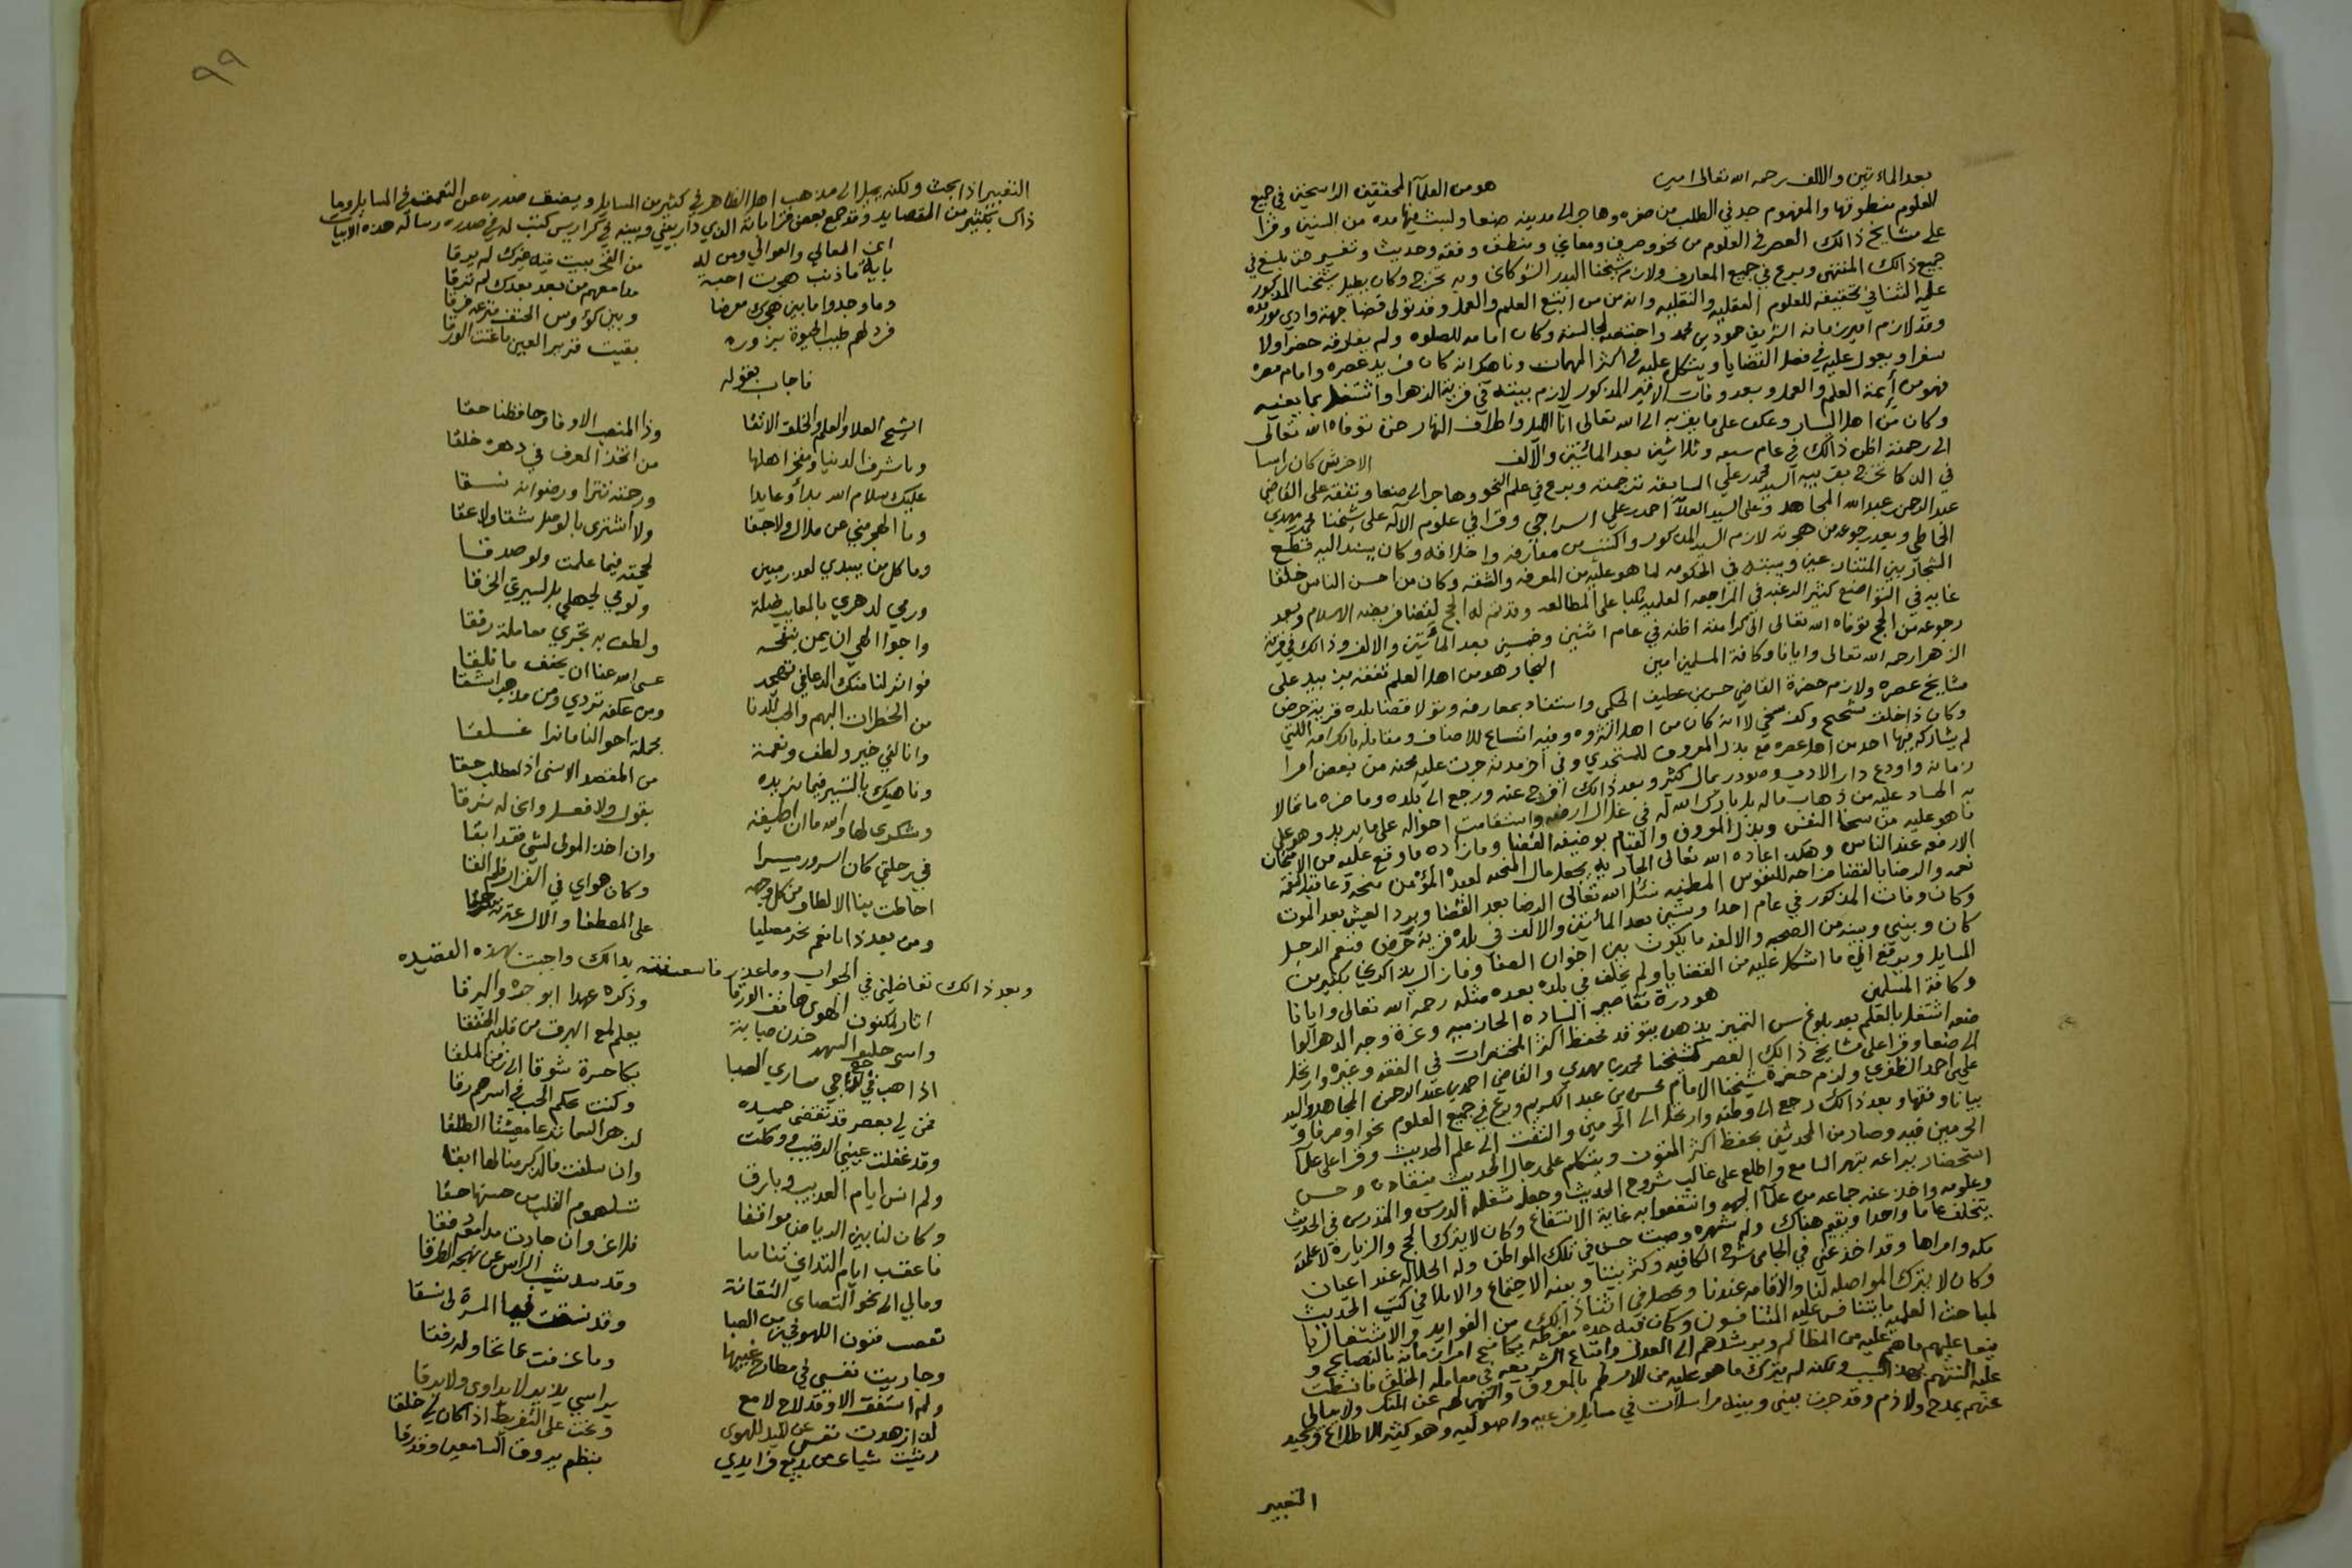 بعد الماءتين والالف رحمه الله تعالى امين هو من العلمآ المحققين الراسخين في جميع
العلوم منطوقها والمفهوم جد في الطلب من صغره وهاجر الى مدينه صنعا ولبث فيها مده من السنين وقرا
على مشايخ ذالك العصر في العلوم من نحو وصرف ومعاني ومنطق وفقه وحديث وتفسير حتى بلغ في
جميع ذالك المنتهى وبرع في جميع المعارف ولازم شيخنا البدر الشوكاني وبه تخرج وكان يطيل شيخنا المذكور
عليه الثنا في تحقيقه للعلوم العقليه والنقليه وانه من من اتبع العلم والعمل وقد تولى قضا جهة وادي مور
وقد لازم امير زمانه الشريف حمود بن محمد واختصه لمجالسته وكان امامه للصلوه ولم يفارقه حضرا ولا
سفرا ويعول عليه في فصل القضايا ويتكل عليه في اكثر المهمات وناهيك انه كان فريد عصره وامام مصره
فهو من أيمة العلم والعمل وبعد وفات الامير المذكور لازم بيته في قرية الزهرا واشتغل بما يعنيه
وكان من اهل اليسار وعكف على ما يقربه الى الله تعالى آنا الليل واطراف النهار حتى توفاه الله تعالى
الى رحمته اظن ذالك في عام سبعه وثلاثين بعد المائتين والالف الاخرش كان رئيسا
في الذكا تخرج بقريبه السيد محمد بن علي السابقه ترجمته وبرع في علم النحو وهاجر الى صنعا وتفقه على القاضي
عبد الرحمن عبد الله المجاهد وعلى السيد العلآ احمد بن علي السراجي وقرا في علوم الآله على شيخنا محمد مهدي
الخاطي وبعد رجوعه من هجرته لازم السيد المذكور واكتسب من معارفه واخلاقه وكان يسند اليه قطع
الشجار بين المتنازعين وبيته في الحكومه لما هو عليه من المعرفه والثقه وكان من احسن الناس خلقا
غايه في التواضع كثير الرغبه في المراجعه العلميه مكبا على المطالعه وقد تم له الحج لقضا فريضه الاسلام وبعد
رجوعه من الحج توفاه الله تعالى الى كرامته اظنه في عام اثنين وخمسين بعد المأتين والالف وذالك في قرية
الزهرا رحمه الله تعالى وايانا وكافة المسلمين امين النجار هو من اهل العلم تفقه بزبيد على
مشايخ عصره ولازم حضرة القاضي حسن بن عطيف الحكمي واستفاد بمعارفه وتولا قضا بلده قرية حرض
وكان ذا خلق سحيح وكف سخي لا انه كان من اهل الثروه وفيه اتساع للاضياف ومقابله بالكرامه اللتي
لم يشاركه فيها احد من اهل عصره مع بذل المعروف للمستجدي وفي آخر مدته جرت عليه محنه من بعض أمرا
زمانه واودع دار الادب وصودر بمال كثير وبعد ذالك افرج عنه ورجع الى بلده وما ضره ما تمالا
به الحساد عليه من ذهاب ماله بل بارك الله له في غلال ارضه واستقامت احواله على ما يريد وهو على
ما هو عليه من سخا النفس وبذل المعروف والقيام بوضيفه القضا وما زاده ما وقع عليه من الامتحان
الا رفعه عند الناس وهكذا عاده الله تعالى الجاريه يجعل مال المحنه لعبده المؤمن منحه وعاقبه النقمه
نعمه والرضا بالقضا مراحه للنفوس المطمئنه نسئل الله تعالى الرضا بعد القضا وبرد العيش بعد الموت
وكان وفات المذكور في عام احدا وستين بعد المائتين والالف في بلده قرية حرض فنعم الرجل
كان وبيني وبينه من الصحبه والالفه ما يكون بين اخوان الصفا وما زال يذاكرني بكثير من
المسايل ويرفع الي ما اشكل عليه من القضايا ولم يخلف في بلده بعده مثله رحمه الله تعالى وايانا
وكافة المسلمين هو درة تقاصير الساده الحازميه وغرة وجه الدهر
ضمد اشتغل بالعلم بعد بلوغ سن التميز بذهن يتوقد تحفظ اكثر المختصرات في الفقه وغيره وارتحل
الى صنعا وقرا على مشايخ ذالك العصر كشيخنا محمد بن مهدي والقاضي احمد بن عبد الرحمن المجاهد والسيد
علي بن احمد الظفري ولازم حضرة شيخنا الامام محسن بن عبد الكريم وبرع في جميع العلوم نحوا وصرفا و
بيانا وفقها وبعد ذالك رجع الى وطنه وارتحل الى الحرمين والتفت الى علم الحديث وقرا على علما
الحرمين فيه وصار من المحدثين يحفظ اكثر المتون ويتكلم على رجال الحديث بنقاده وحسن
استحضار براعه تبهر السامع واطلع على غالب شروح الحديث وجعل شغله الدرس والتدريس في الحديث
وعلومه واخذ عنه جماعه من علمآ الجهه وانتفعوا به غاية الانتفاع وكان لا يترك الحج والزيارة لا علمته
يتخلف عاما واحدا ويقيم هناك وله شهره وصيت حسن في تلك المواطن وله الجلاله عند اعيان
مكه وامراها وقد اخذ عني في الجامي شرح الكافيه وكثر بيننا وبينه الاجتماع والاملا في كتب الحديث
وكان لا يترك المواصله لنا والاقامه عندنا ويحصل في اثنا ذالك من الفوايد والاشتغال با
لمباحث العلميه ما يتنافس عليه المتنافسون وكان فيه حده مفرطه يكافح امرا زمانه بالنصايح و
ينعا عليهم ما هم عليه من المظالم ويرشدهم الى العدل واتباع الشريعه في معامله الخلق فانبسطت
عليه السنتهم بهذا السبب ولكنه لم يترك ما هو عليه من الامر لهم بالمعروف والنهي لهم عن المنكر ولا يبالي
عنهم بمدح ولا ذم وقد جرت بيني وبينه مراسلات في مسايل فرعيه واصوليه وهو كثير الاطلاع ويجيد
التعبير
٩٩
التعبير اذا بحث ولكنه يميل الى مذهب اهل الظاهر في كثير من المسايل ويضيق صدره عن التعمق في المسايل وما
ذاك بكثير من المقصايد وقد جمع بعض قراباته الذي دار بيني وبينه في كراريس كتبت له في صدر رساله هذه الابيات
ابن المعالي والعوالي ومن له من الفخر بيت فيه غيرك لم يرقا
باية ما ذنب هجرت احبة مدامعهم من بعد بعدك لم ترقا
وما وجدوا ما بين هجرك معرضا وبين كؤوس الحتف منزعه فرقا
فرد لهم طيب الحيوة بزوره بقيت قرير العين ما غنت الورقا
فاجاب بقوله
اشيخ العلا والعلم والخلق الانقا وذا المنصب الاوفا وحافظنا حقا
ويا شرف الدنيا ومفخر اهلها من اتخذ العرف في دهره خلقا
عليك سلام الله بدأ وعايدا ورحمته تترا ورضوانه نسقا
وما الهجر مني عن ملال ولا جفا ولا أشترى بالوصل شقا ولا عقا
وما كل من يبدي لعذر مبين لحجته فيما علمت ولو صدقا
ورمي لدهري بالمعايب ضلة ولومي لجهلي بل لسيرتي الخرقا
وارجوا الهي ان يمن بنفحه ولطف به تجري معاملة رفقا
فواثر لنا منك الدعا في تهجد عسى الله عنا ان يخفف ما نلقا
من الخطرات البهم والحب للدنا ومن عكفه تردي ومن مذهب اشقا
وانا لفي خير ولطف ونعمة بجملة احوالنا ما ندا غسقا
وناهيك بالتيسير فيما نريده من المقصد الاسنى اذ نطلب حقا
وشكري لها والله ما ان اطيقه بقول ولا فعل وانى له نرقا
في رحلتي كان السرور ميسرا وان اخذ المولى لشي فقد ابقا
احاطت بنا الالطاف من كل وجهه وكان هواي في الفرار ولم القا
ومن بعد ذا يا نعم نحر مصليا على المصطفا والال عترته
وبعد ذالك تقاضيني في الجواب وما عذر فاسعفته بذالك واجبت بهذه القصيده
اثار لمكنون الهوى هاتف الورقا وذكره عهدا ابو جده والبرقا
وامسى حليف السهد خدن صبابة يعلم لمع البرق من قلبه الخفقا
اذا هب في الداجي ساري الصبا بكا حسرة شوقا الى زمن الملقا
فمن لي بعصر قد تقضى حميده وكنت بحكم الحب في اسرهم رقا
وقد غفلت عيني الرقيب ووكلت لزهر السما ترعا معيشتنا الطلقا
ولم انس ايام العذيب وبارق وان سلفت فالذكر منا لها ابقا
وكان لنا بين الرياض مواقفا تسلهموم القلب من حسنها حقا
فاعقب ايام التداني تناسا فلا غروان جادت مدامعه دفقا
ومالي الى نحو التصابي التفاتة وقد سد شيب الراس عن نهجه الطرقا
تعصب فنون اللهو في من الصبا وقد نسقت فيها المسرة لي نسقا
وجاريت نفسي في مطارح غيها وما عرفت عما تحاوله رفقا
ولم استفق الا وقد لاح لامع براسي بذيد لا يداوى ولا يرقا
لئن زهدت نفسي عن الميل للهوى وعنت على التفريط اذ كان لي خلقا
رثيت شبابي من بديع فرايدي بنظم يروق السامعين وقد رقا